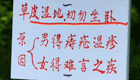 草皮湿地切勿坐卧
原因
男得痔疮湿疹
女得难言之疾